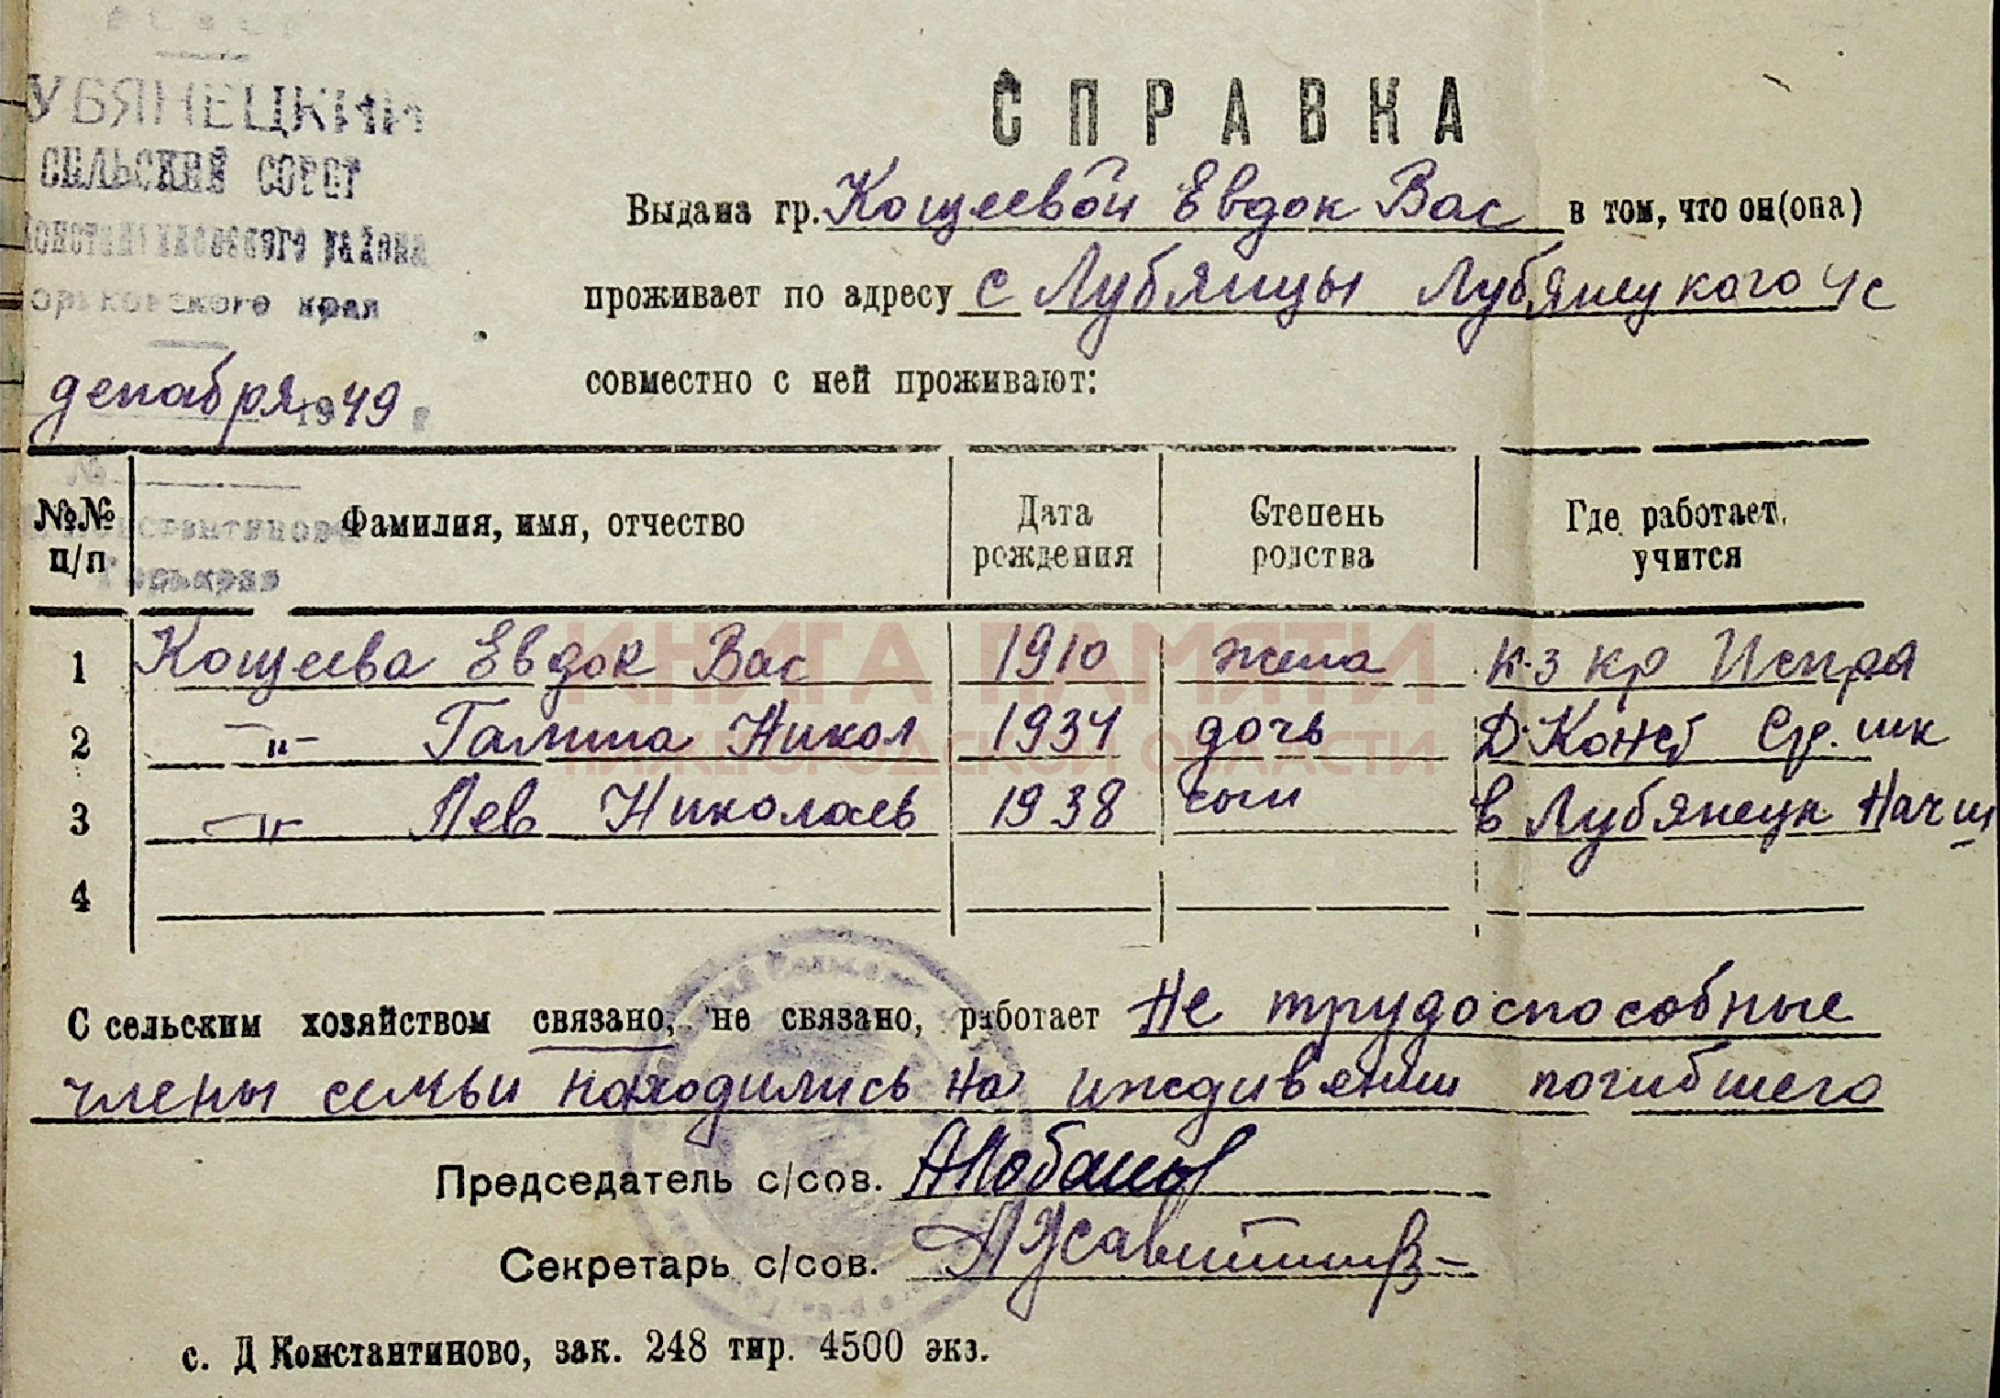 УБЯНЕЦКИЙ
СЕЛЬСКИЙ СОВЕТ
Константиновского района
орьковского края
декабря 1949 г
№
Константиново
Горькрая
СПРАВКА
Выдана гр. Кощеевой Евдок Вас в том, что он(она)
проживает по адресу с Лубянцы Лубянецкого
совместно с ней проживают:
№№ п/п Фамилия, имя, отчество Дата рождения Степень родства Где работает, учится
1 Кощеева Евдок Вас 1910 жена к-з кр Искра
2 -"- Галина Никол 1934 дочь Д Конст Ср. шк
3 -"- Лев Николаев 1938 сын в Лубянецк Нач ш
4
КНИГА ПАМЯТИ
НИЖЕГОРОДСКОЙ ОБЛАСТИ
С сельским хозяйством связано, не связано, работает Не трудоспособные
члены семьи находились на иждивении погибшего
Председатель с/сов. АЛобанов
Секретарь с/сов.
с. Д Константиново, зак. 248 тир. 4500 экз.